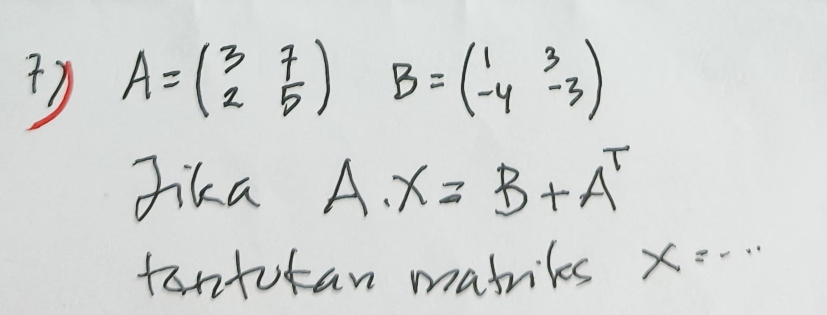 7) A = (3 7 2 5) B = (1 3 -4 -3)
Jika A.X = B + Aᵀ
tentukan matriks X = ....